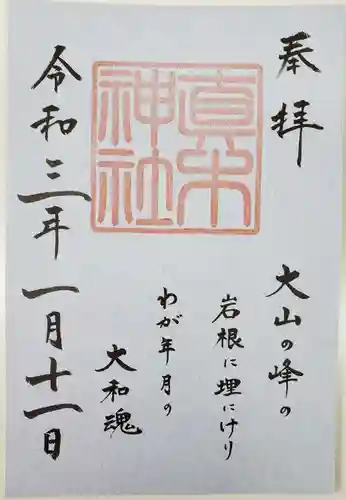 奉拝
真木神社
大山の峰の
岩根に埋にけり
わが年月の
大和魂
令和三年一月十一日